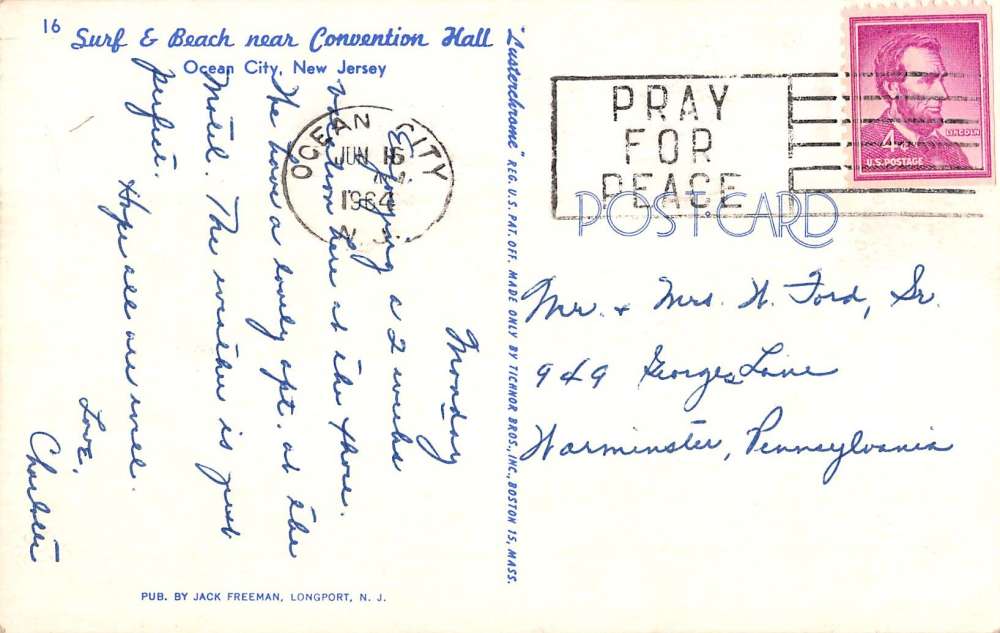 16
Surf & Beach near Convention Hall
Ocean City, New Jersey
Monday
Enjoying a 2 weeks
vacation here at the shore.
We have a lovely apt. at the
Motel. The weather is just
perfect.
Hope all are well.
Love,
Charlotte
PUB. BY JACK FREEMAN, LONGPORT, N. J.
"Lusterchrome" REG. U.S. PAT. OFF. MADE ONLY BY TICHNOR BROS., INC., BOSTON 15, MASS.
OCEAN CITY
JUN 16
1964
N.J.
PRAY
FOR
PEACE
4¢
LINCOLN
U.S. POSTAGE
POST CARD
Mr. & Mrs. W. Ford, Sr.
949 Georges Lane
Warminster, Pennsylvania